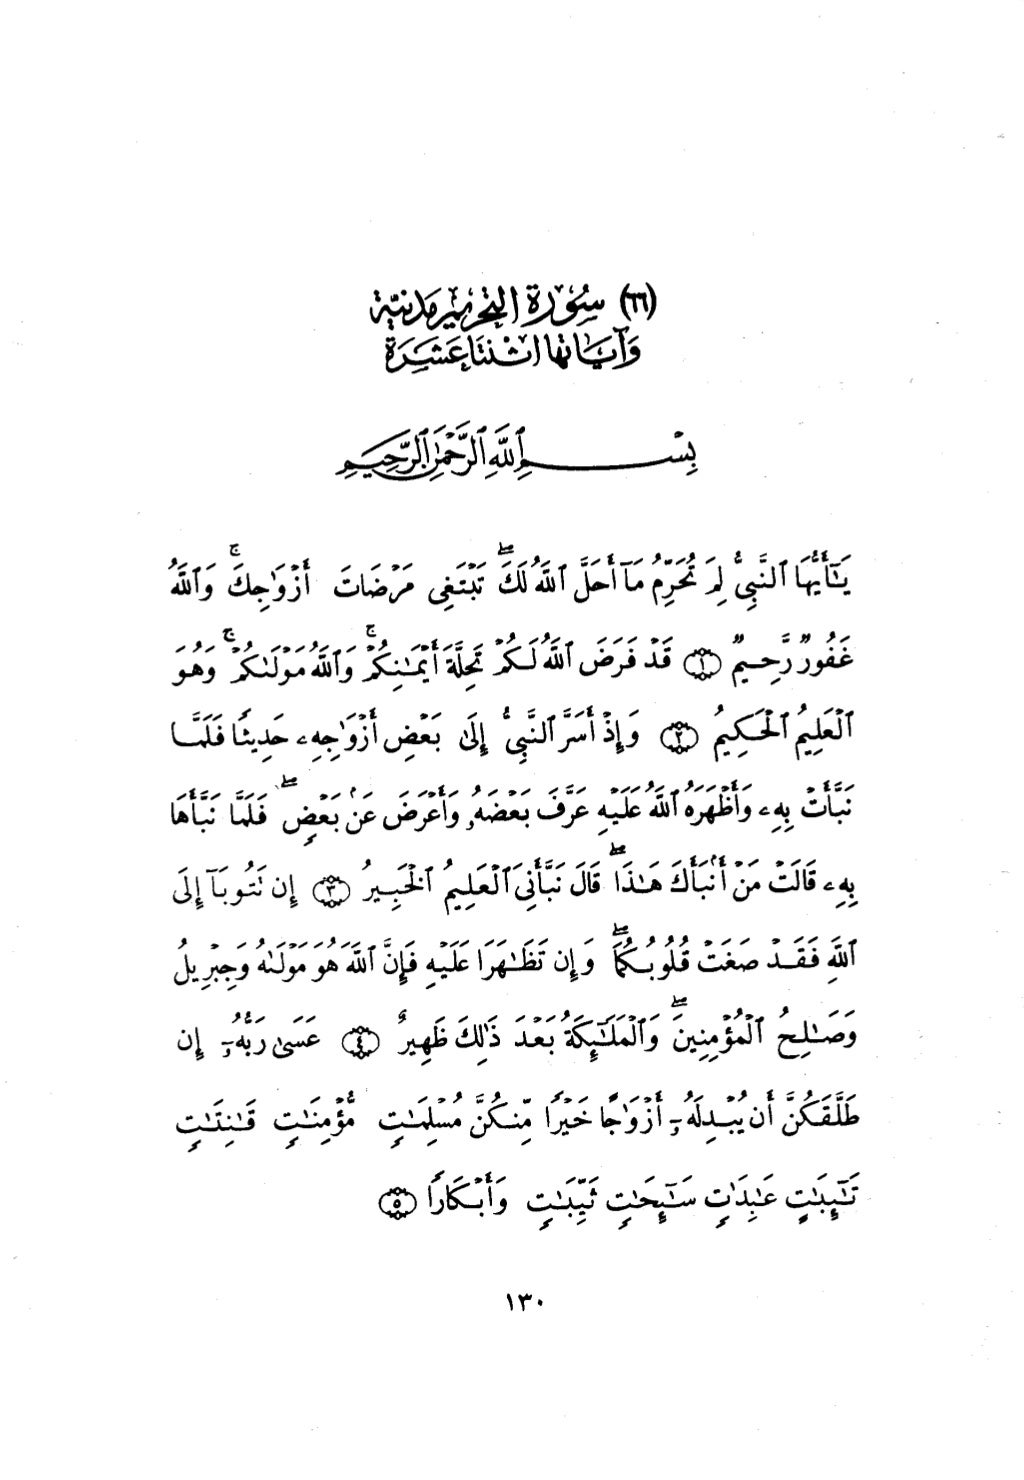 (٦٦) سُورَةُ التَّحْرِيمِ مَدَنِيَّة
وَآيَاتُهَا اثْنَتَا عَشَرَة
بِسْمِ ٱللَّهِ ٱلرَّحْمَٰنِ ٱلرَّحِيمِ
يَٰٓأَيُّهَا ٱلنَّبِىُّ لِمَ تُحَرِّمُ مَآ أَحَلَّ ٱللَّهُ لَكَ ۖ تَبْتَغِى مَرْضَاتَ أَزْوَٰجِكَ ۚ وَٱللَّهُ
غَفُورٌ رَّحِيمٌ ١ قَدْ فَرَضَ ٱللَّهُ لَكُمْ تَحِلَّةَ أَيْمَٰنِكُمْ ۚ وَٱللَّهُ مَوْلَىٰكُمْ ۖ وَهُوَ
ٱلْعَلِيمُ ٱلْحَكِيمُ ٢ وَإِذْ أَسَرَّ ٱلنَّبِىُّ إِلَىٰ بَعْضِ أَزْوَٰجِهِۦ حَدِيثًا فَلَمَّا
نَبَّأَتْ بِهِۦ وَأَظْهَرَهُ ٱللَّهُ عَلَيْهِ عَرَّفَ بَعْضَهُۥ وَأَعْرَضَ عَنۢ بَعْضٍ ۖ فَلَمَّا نَبَّأَهَا
بِهِۦ قَالَتْ مَنْ أَنۢبَأَكَ هَٰذَا ۖ قَالَ نَبَّأَنِىَ ٱلْعَلِيمُ ٱلْخَبِيرُ ٣ إِن تَتُوبَآ إِلَى
ٱللَّهِ فَقَدْ صَغَتْ قُلُوبُكُمَا ۖ وَإِن تَظَٰهَرَا عَلَيْهِ فَإِنَّ ٱللَّهَ هُوَ مَوْلَىٰهُ وَجِبْرِيلُ
وَصَٰلِحُ ٱلْمُؤْمِنِينَ ۖ وَٱلْمَلَٰٓئِكَةُ بَعْدَ ذَٰلِكَ ظَهِيرٌ ٤ عَسَىٰ رَبُّهُۥٓ إِن
طَلَّقَكُنَّ أَن يُبْدِلَهُۥٓ أَزْوَٰجًا خَيْرًا مِّنكُنَّ مُسْلِمَٰتٍ مُّؤْمِنَٰتٍ قَٰنِتَٰتٍ
تَٰٓئِبَٰتٍ عَٰبِدَٰتٍ سَٰٓئِحَٰتٍ ثَيِّبَٰتٍ وَأَبْكَارًا ٥
١٣٠